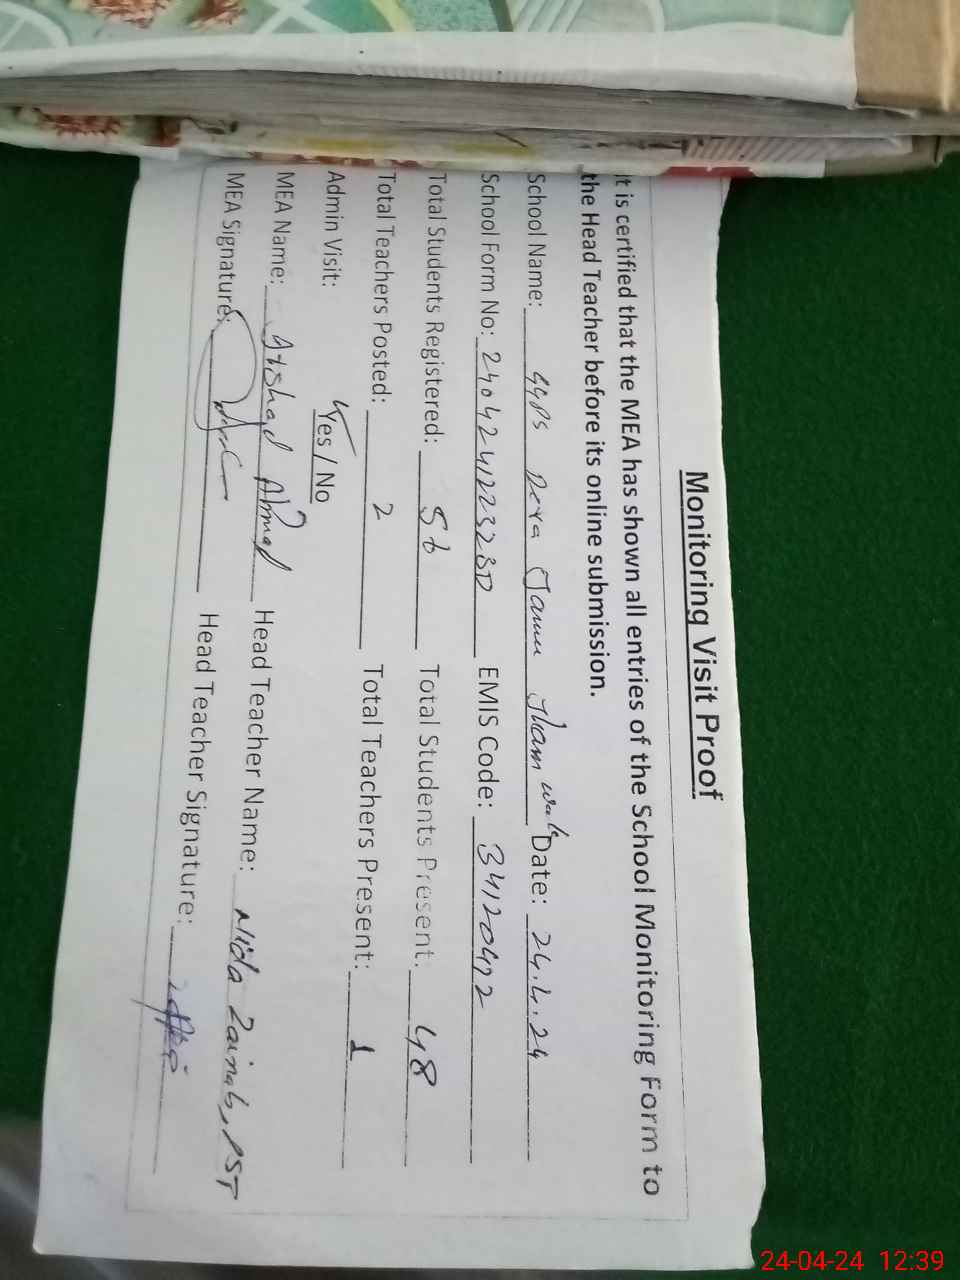 Monitoring Visit Proof
It is certified that the MEA has shown all entries of the School Monitoring Form to
the Head Teacher before its online submission.
School Name: GGPS Dera Jamu Date: 24.4.24
School Form No: EMIS Code: 34120472
Total Students Registered: 56 Total Students Present: 48
Total Teachers Posted: 2 Total Teachers Present: 1
Admin Visit: Yes / No
MEA Name: Arshad Ahmad Head Teacher Name: Nida Zainab, PST
MEA Signature: Head Teacher Signature:
24-04-24 12:39